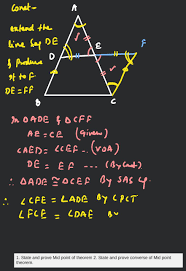 Const-
extend the
line seg DE
& Produce
it to F
DE = FF
A
D
E
F
B
C
In △ADE & △CFF
AE = CE (given)
∠AED = ∠CEF - (VOA)
DE = EF ... (By Const)
∴ △ADE ≅ △CEF By SAS
∴ ∠CFE = ∠ADE By CPCT
∠FCE = ∠DAE By
1. State and prove Mid point of theorem 2. State and prove converse of Mid point theorem.